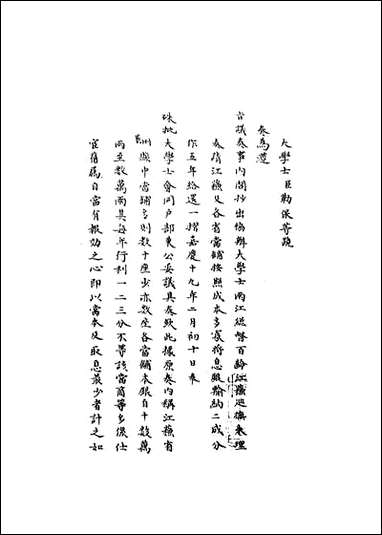 大學士臣勒保等跪
奏為遵
旨議奏事內閣抄出協辦大學士兩江總督百齡江蘇巡撫朱理
奏請江蘇及各省當鋪按照成本多寡將息銀輸納二成分
作五年給還一摺嘉慶十九年二月初十日奉
硃批大學士會同戶部秉公妥議具奏欽此據原奏內稱江蘇省
州縣中當鋪多則數十座少亦數座各當鋪本銀自十數萬
兩至數萬兩具每年行利一二三分不等該當商等多係仕
宦舊屬自當有報効之心即以當本及取息最少者計之如